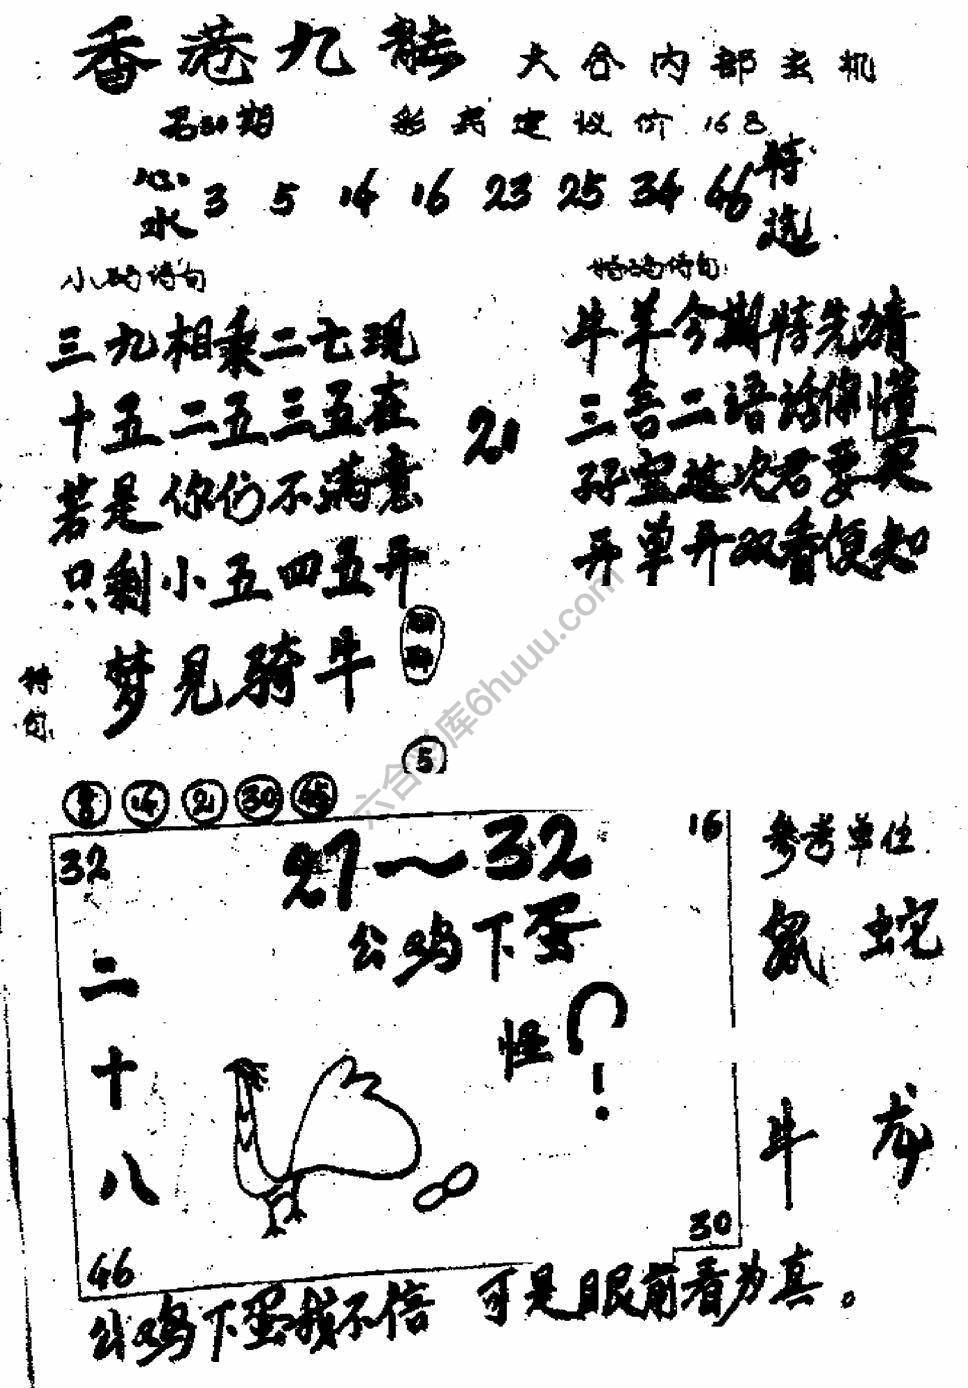 香港九龍 六合内部玄机
期 彩 建议价 168
心水 3 5 14 16 23 25 34 46 特选
小码诗句
三九相乘二七现
十五二五三五在
若是你们不满意
只剩小五四五开
21
特码诗句
牛羊今期特先猜
三言二语话你懂
这次君要
开单开双看便知
特句
梦见骑牛
5
14 21 30 45
32 16
27～32
公鸡下蛋
怪?
二十八
46 30
参考单位
鼠 蛇
牛 龙
公鸡下蛋我不信 可是眼前看为真。
六合 库6huuu.com